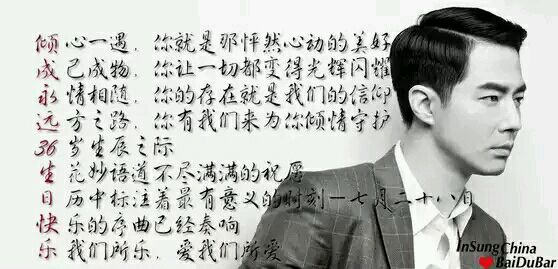 倾心一遇，你就是那怦然心动的美好
成己成物，你让一切都变得光辉闪耀
永情相随，你的存在就是我们的信仰
远方之路，你有我们来为你倾情守护
36岁生辰之际
生花妙语道不尽满满的祝愿
日历中标注着最有意义的时刻—七月二十八日
快乐的序曲已经奏响
乐我们所乐，爱我们所爱
InSungChina
BaiDuBar